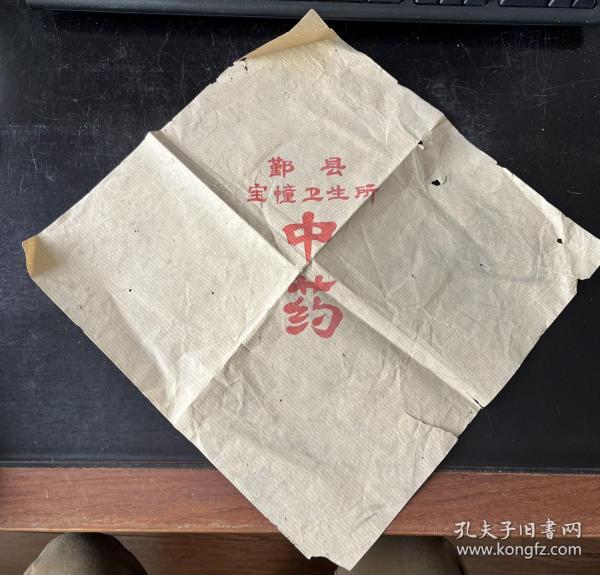 鄞县
宝幢卫生所
中
药
孔夫子旧書网
www.kongfz.com